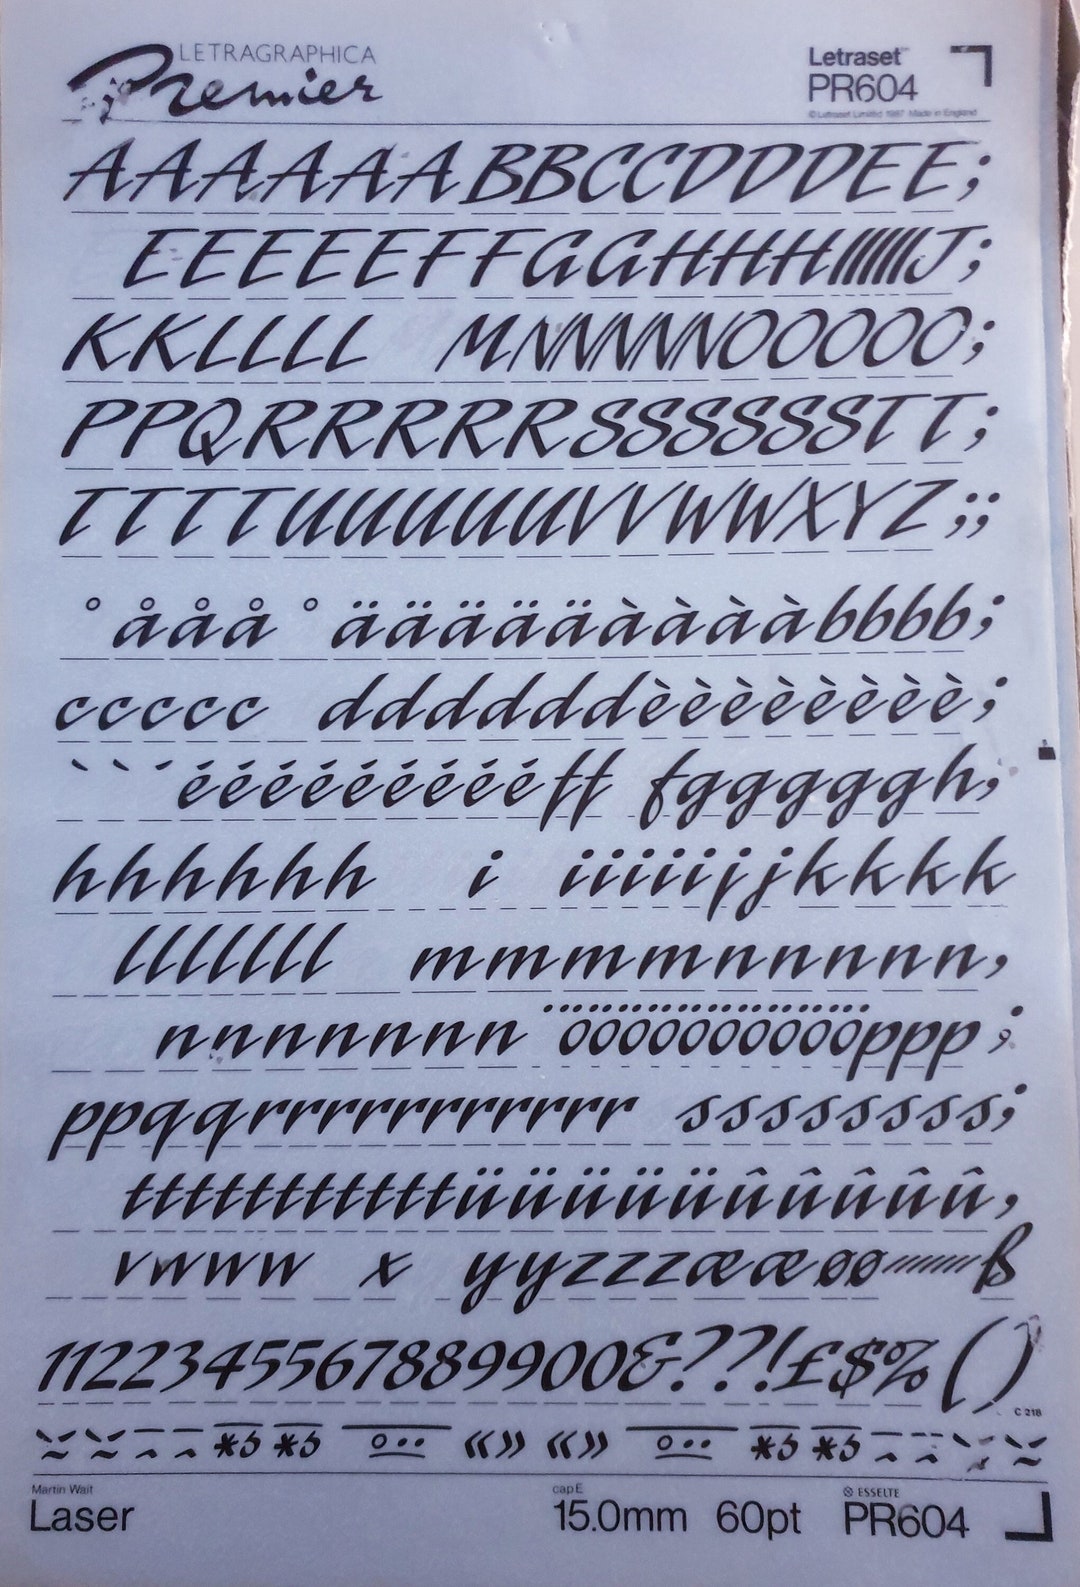 LETRAGRAPHICA
Premier
Letraset
PR604
© Letraset Limited 1987 Made in England
AAAAAABBCCDDDEE;
EEEEEFFGGHHHIIIIIIJ;
KKLLLL MNNNNNOOOOO;
PPQRRRRRSSSSSSTT;
TTTTUUUUUUVVWWXYZ;;
° ååå ° äääääààààbbbb;
ccccc ddddddèèèèèèèè;
` ` ´ éééééééééff fggggggh;
hhhhhh i iiiiijjkkkk
llllllll mmmmnnnnnn,
nnnnnnnn ¨ööööööööööppp;
ppqqrrrrrrrrrrrrr ssssssss;
ttttttttttttüüüüüûûûûû,
vwww x yyzzzææøø ß
1122345567889900&??!£$%()
C 218
«» «»
Martin Wait
Laser
cap E
15.0mm 60pt
ESSELTE
PR604